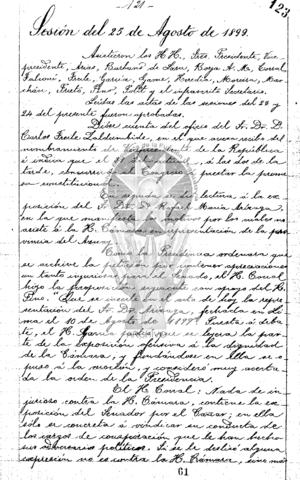 - 121 -
123
Sesión del 25 de Agosto de 1899.
Asistieron los H H. Sres. Presidente, Vice-
presidente, Arias, Borja A. M. Corral
Falconí, Freile, García, Game, Heredia, Moreira,
Prieto, Pino, y el infrascrito Secretario.
Leídas las actas de las sesiones del 23 y
24 del presente fueron aprobadas.
Dióse cuenta del oficio del Sr. Dr. D.
Carlos Freile Zaldumbide, en el que avisa recibo del
nombramiento de Vicepresidente de la República
é indica que el 31 del actual, á las dos de la
tarde, Congreso á prestar la prome-
sa constitucional.
En seguida se dió lectura á la ex-
posición del Sr. Dr. D. Rafael María Arízaga,
en la que manifiesta los motivos por los cuales no
asiste á la H. Cámara en representación de la pro-
vincia del Azuay.
Como la Presidencia ordenara que
se archive la por contener apreciaciones
un tanto injuriosas para el Senado, el H. Corral
hizo la proposición siguiente con apoyo del H.
Pino. Que se inserte en el acta de hoy la repre-
sentación del Sr. Dr. Arízaga, fechada en
el 10 de Agosto de 1899. Puesta á deba-
te, el H. García pidió que se leyera la par-
te de la exposición ofensiva á la dignidad
de la Cámara, y fundándose en ella se o-
puso á la moción, y consideró muy acerta-
da la orden de la Presidencia.
El H. Corral: Nada de in-
jurioso contra la H. Cámara, contiene la ex-
posición del Senador por el Azuay; en ella
sólo se concreta á vindicar su conducta de
los cargos de conspiración que le han hecho
sus adversarios políticos. Si se le deslizó alguna
expresión no es contra la H. Cámara, sino más
61